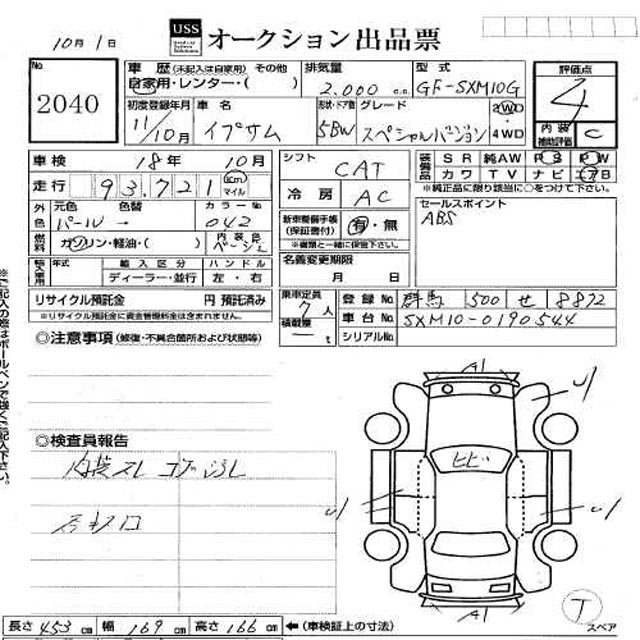 10月1日
USS オークション出品票
No 2040
車歴 (未記入は自家用) その他
自家用・レンター・( )
排気量 2.000 c.c.
型式 GF-SXM10G
評価点 4
初度登録年月 11/10月
車名 イプサム
形状・ドア数 5BW
グレード スペシャルバージョン
2WD
4WD
内装 補助評価 C
車検 18年 10月
走行 93,721 km マイル
シフト CAT
冷房 AC
装備品 SR 純AW PS PW
カワ TV ナビ エアB
※純正品に限り該当に○をつけて下さい。
外色 元色 パール 色替 → カラーNo 042
燃料 ガソリン・軽油・( ) 内装色 ベージュ
新車整備手帳 (保証書付) 有・無
※書類と一緒に保管下さい。
セールスポイント
ABS
輸入車用 年式 輸入区分 ハンドル
ディーラー・並行 左・右
名義変更期限
月 日
リサイクル預託金 円 預託済み
※リサイクル預託金に資金管理料金は含まれません。
乗車定員 7人
積載量 ー t
登録No 群馬 500 せ 8872
車台No SXM10-0190544
シリアルNo
◎注意事項 (修復・不具合箇所および状態等)
◎検査員報告
内装スレ コゲ シミ
A1
U
ヒビ
U
U
A1
T
スペア
長さ 453 cm 幅 169 cm 高さ 166 cm ←(車検証上の寸法)